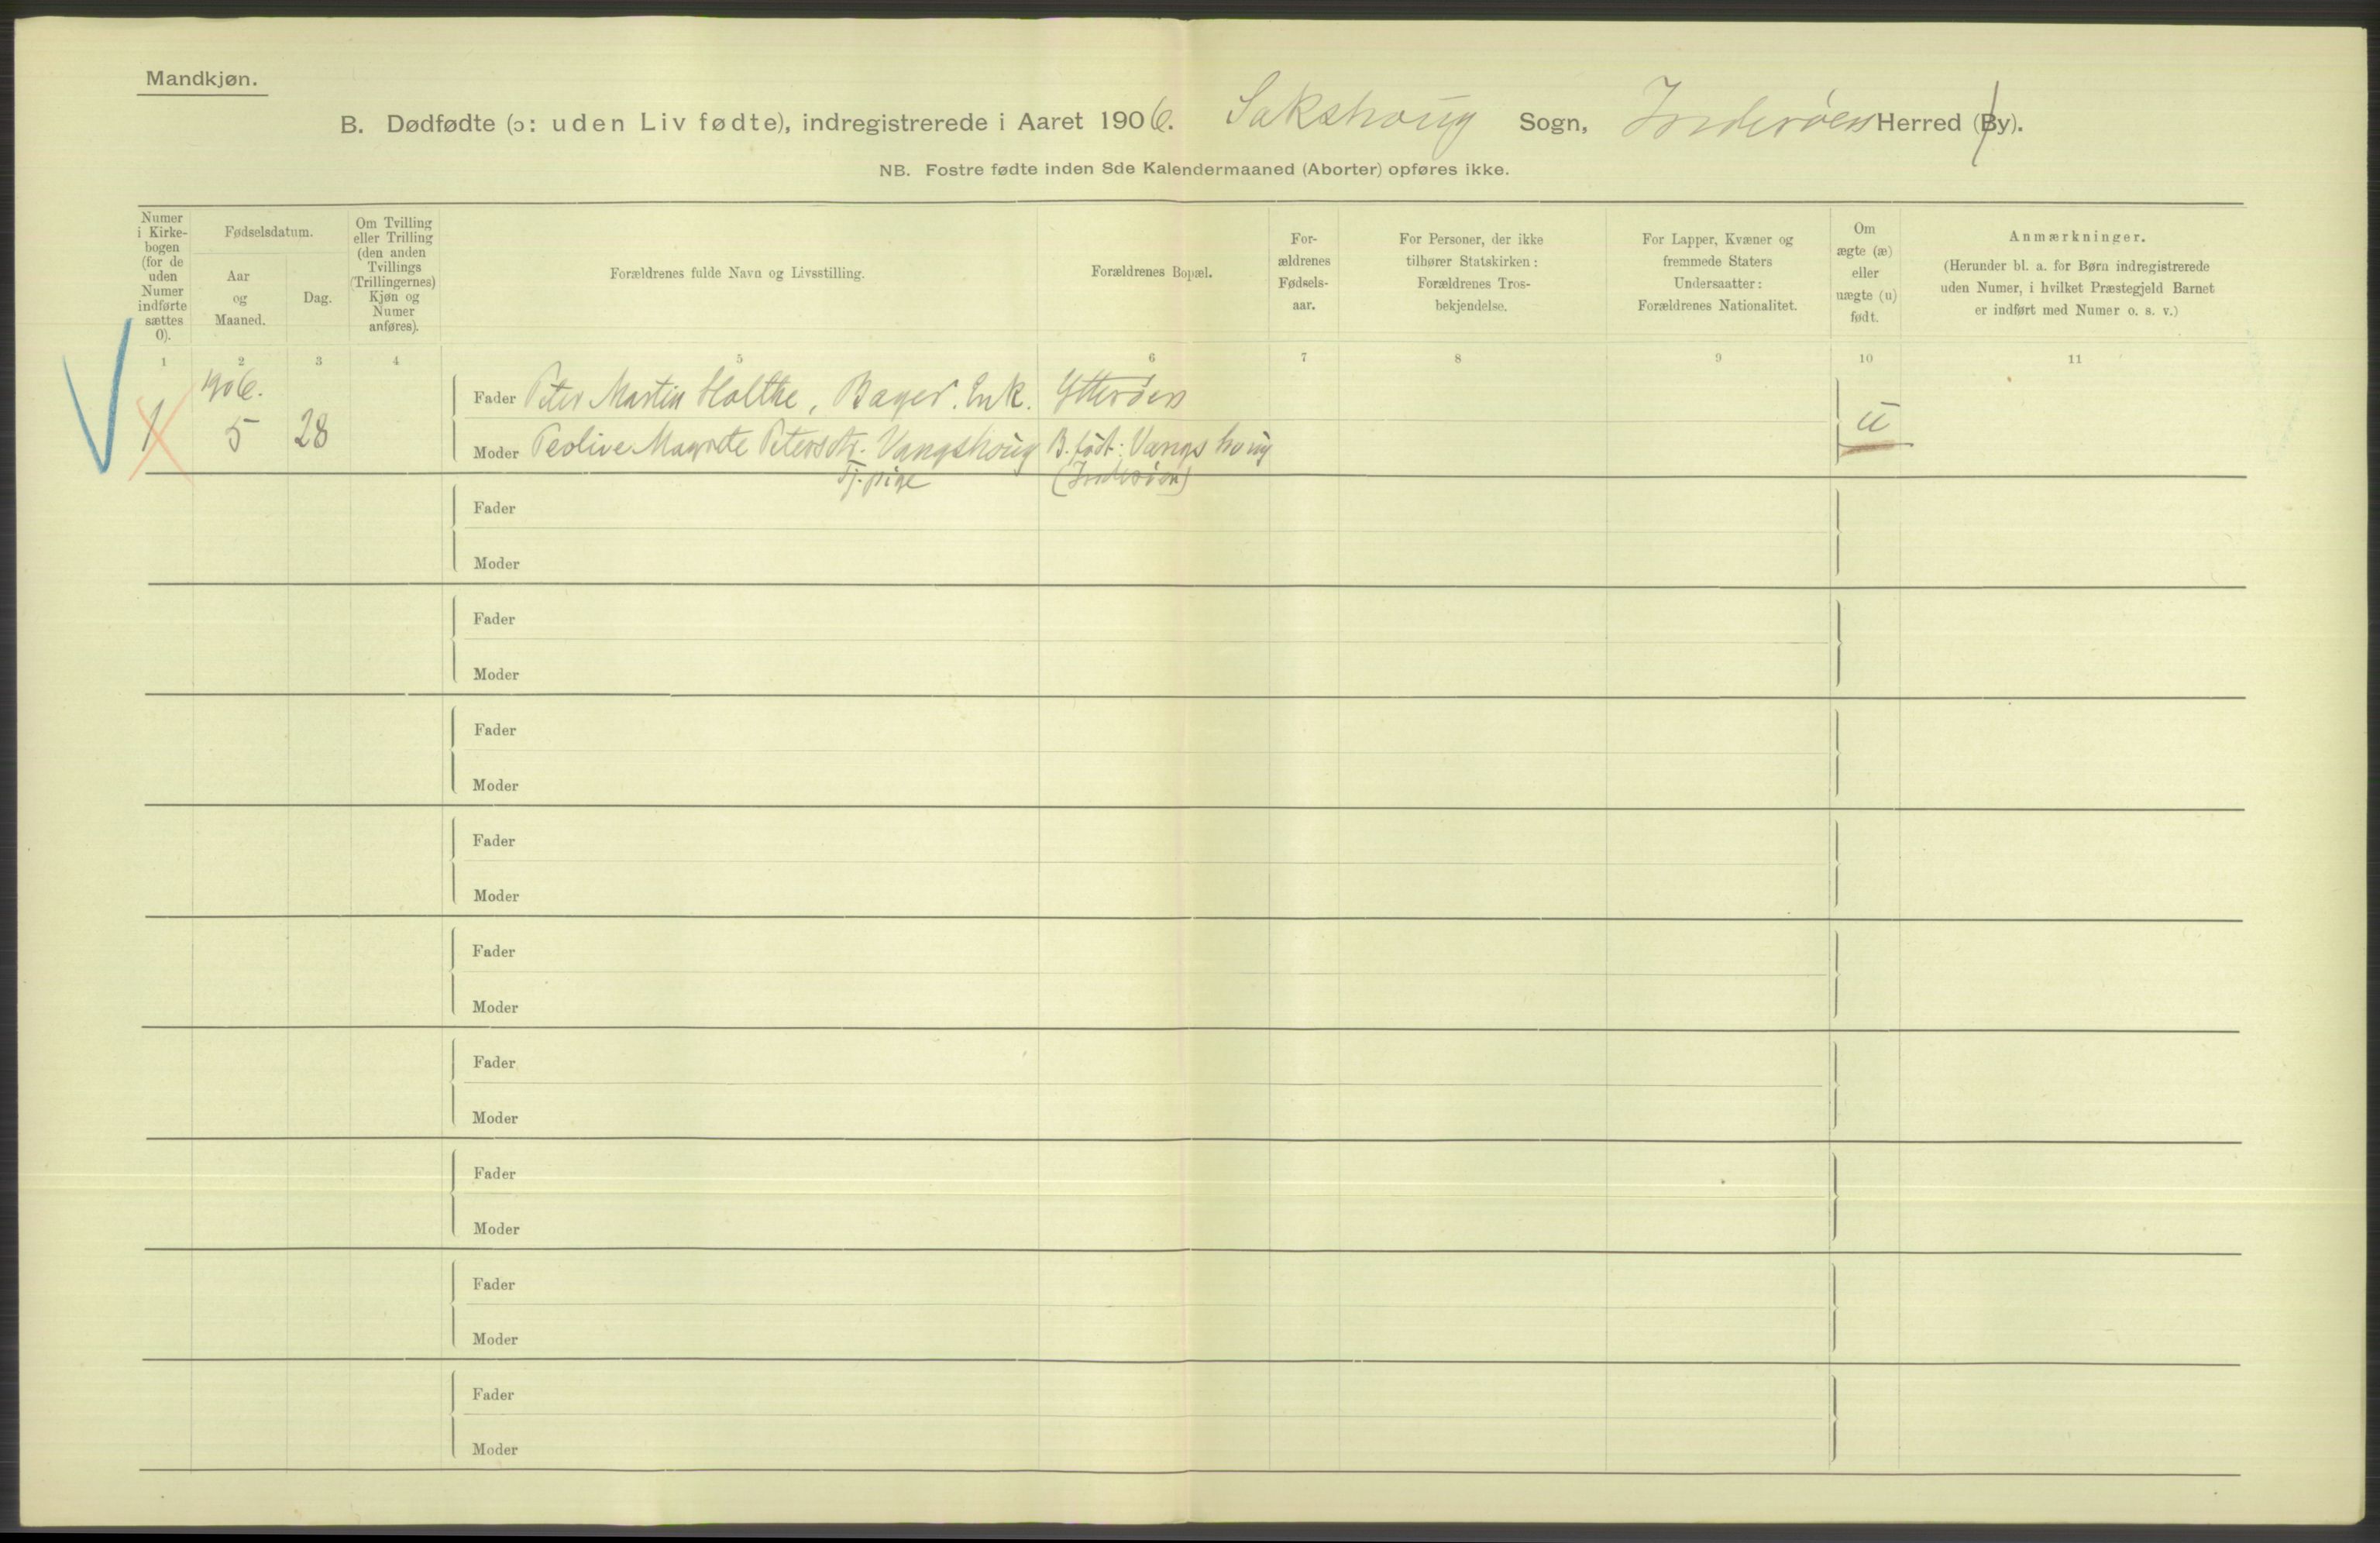 Mandkjøn.
B. Dødfødte (ɔ: uden Liv fødte), indregistrerede i Aaret 1906. Sakshoug Sogn, Inderøen Herred (By).
NB. Fostre fødte inden 8de Kalendermaaned (Aborter) opføres ikke.
Numer i Kirke- bogen (for de uden Numer indførte sættes 0).
Fødselsdatum.
Aar og Maaned.
Dag.
Om Tvilling eller Trilling (den anden Tvillings (Trillingernes) Kjøn og Numer anføres).
Forældrenes fulde Navn og Livsstilling.
Forældrenes Bopæl.
For- ældrenes Fødsels- aar.
For Personer, der ikke tilhører Statskirken: Forældrenes Tros- bekjendelse.
For Lapper, Kvæner og fremmede Staters Undersaatter: Forældrenes Nationalitet.
Om ægte (æ) eller uægte (u) født.
Anmærkninger.
(Herunder bl. a. for Børn indregistrerede uden Numer, i hvilket Præstegjeld Barnet er indført med Numer o. s. v.)
1 2 3 4 5 6 7 8 9 10 11
1906.
Fader Peter Martin Holthe, Bager. Enk. Ytterøen
1 5 28 u
Moder Peolive Magrete Petersdtr. Vangshoug B. født: Vangshoug
Tj. pige (Inderøen)
Fader
Moder
Fader
Moder
Fader
Moder
Fader
Moder
Fader
Moder
Fader
Moder
Fader
Moder
Fader
Moder
Fader
Moder